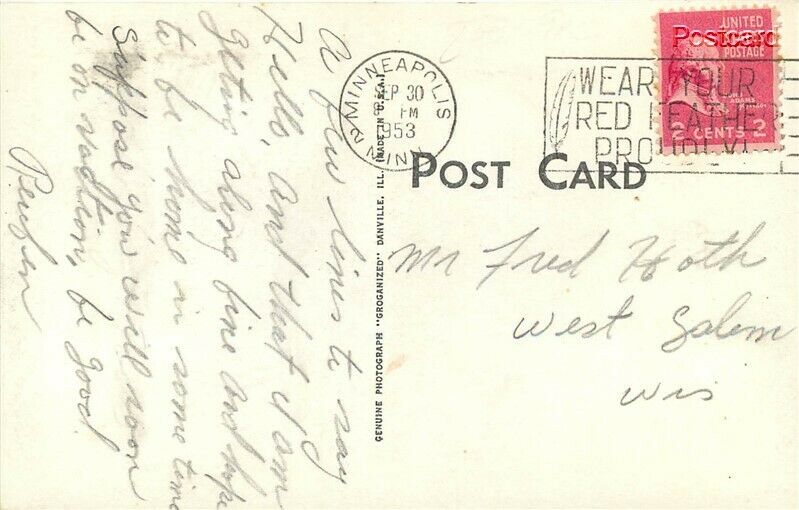 A few lines to say
Hello, and that I am
geting along fine and hope
to be home in some time
Suppose you will soon
be on vadtion, be good
Reuben
GENUINE PHOTOGRAPH "GROGANIZED" DANVILLE, ILL. (MADE IN U.S.A.)
MINNEAPOLIS
SEP 30
PM
1953
2
MINN.
WEAR YOUR
RED FEATHER
UNITED
POSTAGE
ADAMS
2 CENTS 2
Postcard
POST CARD
Mr Fred Hoth
West Salem
Wis